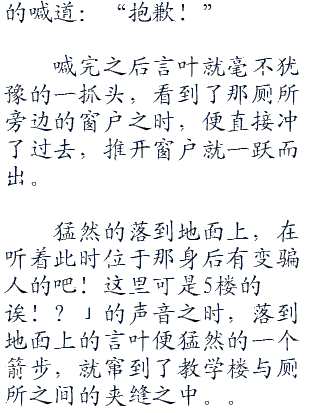 的喊道：“抱歉！”
喊完之后言叶就毫不犹
豫的一抓头，看到了那厕所
旁边的窗户之时，便直接冲
了过去，推开窗户就一跃而
出。
猛然的落到地面上，在
听着此时位于那身后有变骗
人的吧！这里可是5楼的
诶！？」的声音之时，落到
地面上的言叶便猛然的一个
箭步，就窜到了教学楼与厕
所之间的夹缝之中。。